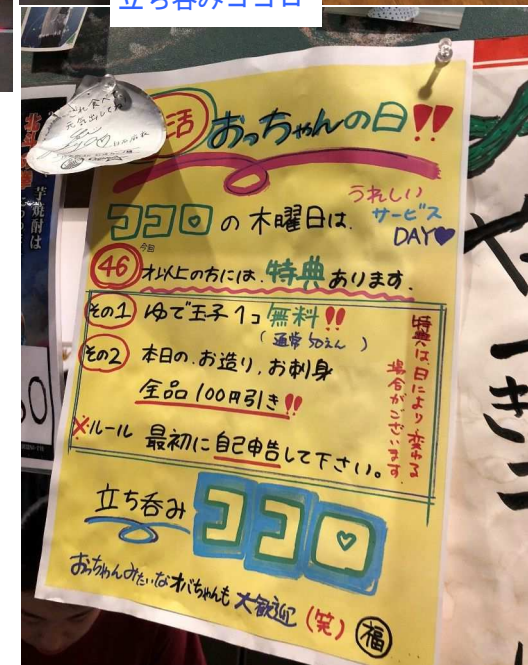 立ち呑みココロ
活 おっちゃんの日!!
ココロの木曜日は、
うれしい
サービス
DAY♥
今回
46才以上の方には、特典あります。
その1 ゆで玉子1コ無料!!
(通常50えん)
その2 本日の、お造り、お刺身
全品100円引き!!
※ルール 最初に自己申告して下さい。
特典は、日により変わる
場合がございます。
立ち呑み ココロ
おっちゃんみたいなオバちゃんも大歓迎(笑) 福
芋焼酎は
やっきう